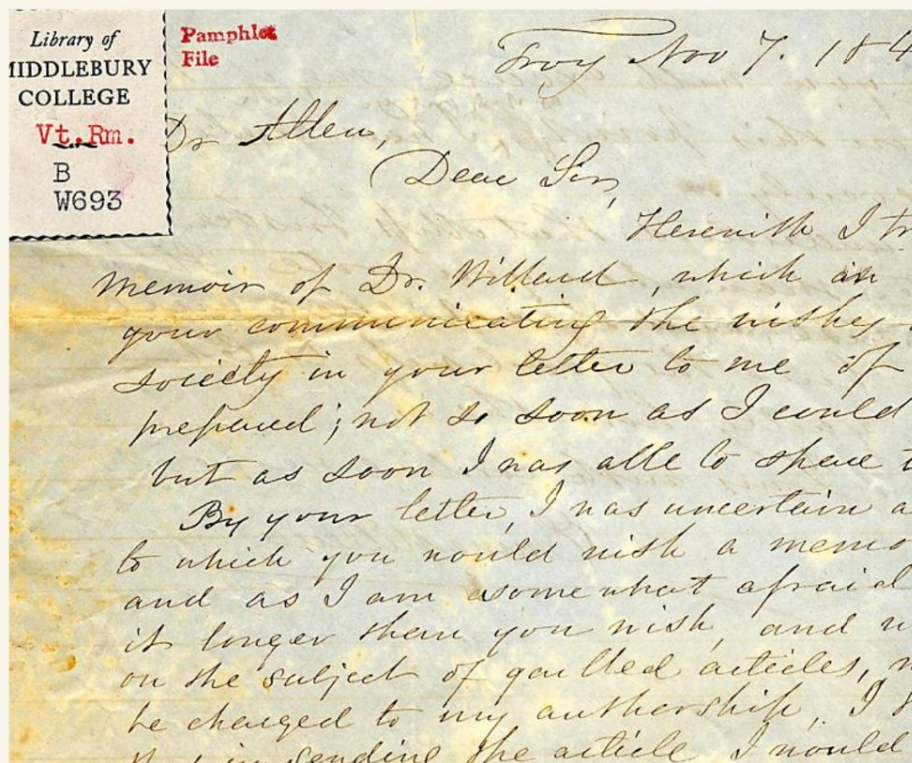 Library of
MIDDLEBURY
COLLEGE
Vt.Rm.
B
W693
Pamphlet
File
Troy Nov 7. 184
Dr Allen,
Dear Sir,
Herewith I tr
memoir of Dr. Willard, which in
your communicating the wishes
society in your letter to me of
prepared; not so soon as I could
but as soon I was able to spare t
By your letter, I was uncertain a
to which you would wish a memo
and as I am asomewhat afraid
it longer than you wish, and
on the subject of garbled articles,
be charged to my authorship, I
in sending the article I would